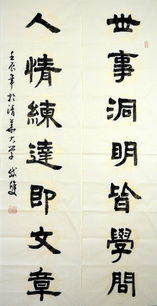 世事洞明皆學問
人情練達即文章
壬辰年於清華大學